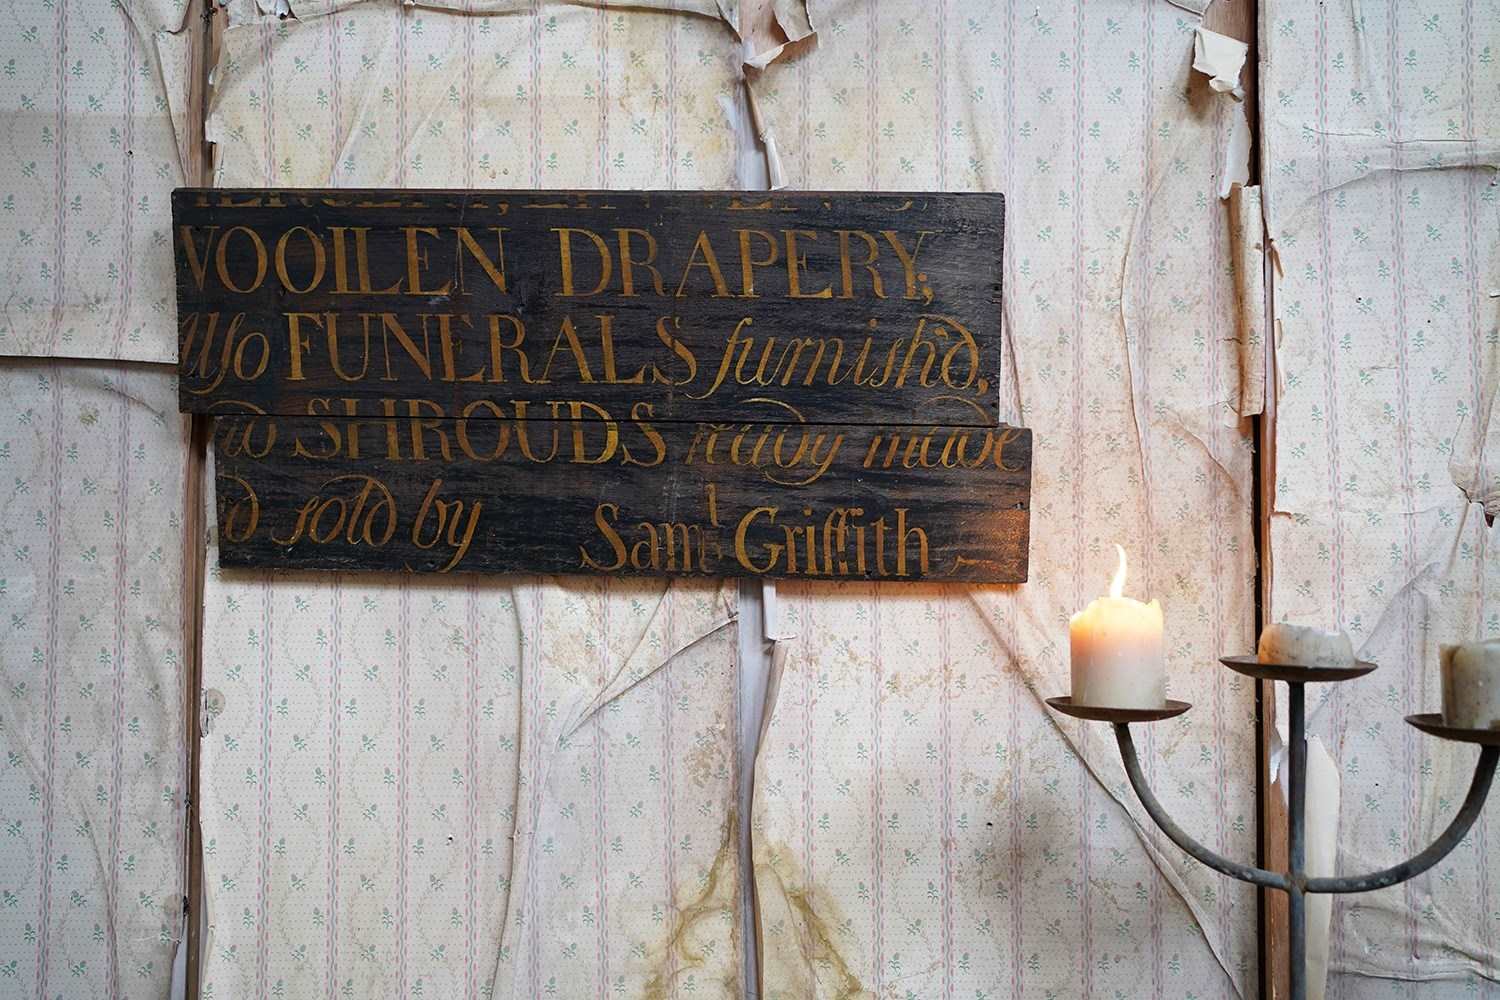 WOOLLEN DRAPERY,
Also FUNERALS furnish'd,
SHROUDS ready made
d sold by Saml Griffith